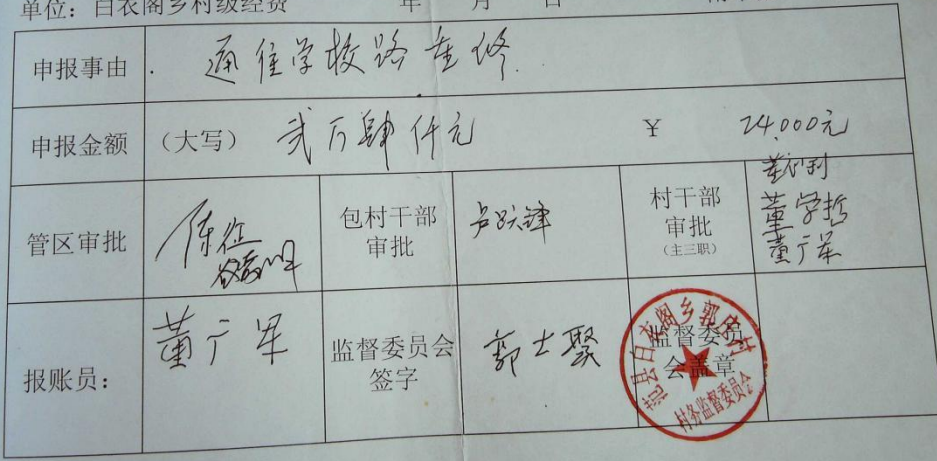 单位：白衣阁乡村级经费 年 月 日
申报事由 通往学校路重修
申报金额 （大写） 贰万肆仟元 ￥ 24.000元
管区审批 包村干部审批 卢跃锋 村干部审批（主三职） 董学哲 董广军
报账员： 董广军 监督委员会签字 郭士聚 监督委员会盖章
范县白衣阁乡郭庄村
村务监督委员会